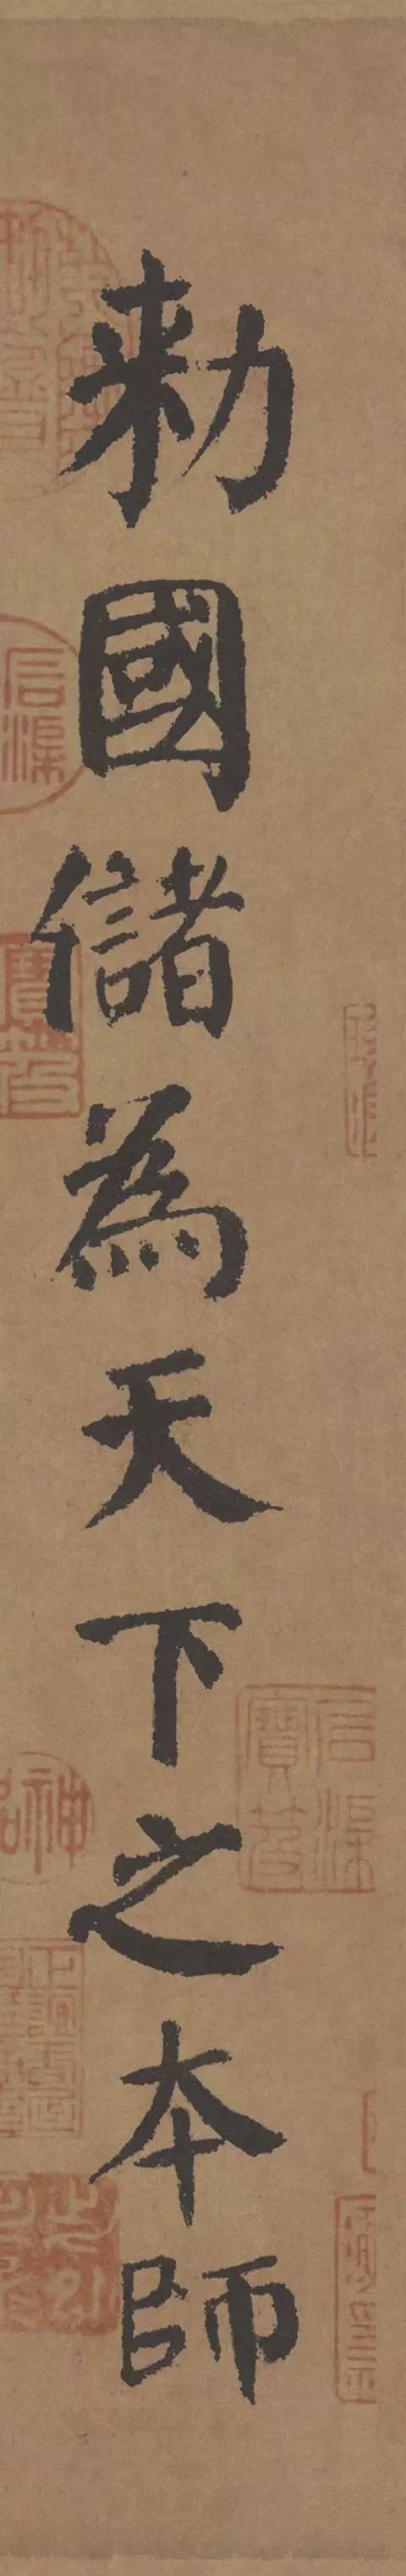 勑國儲為天下之本師